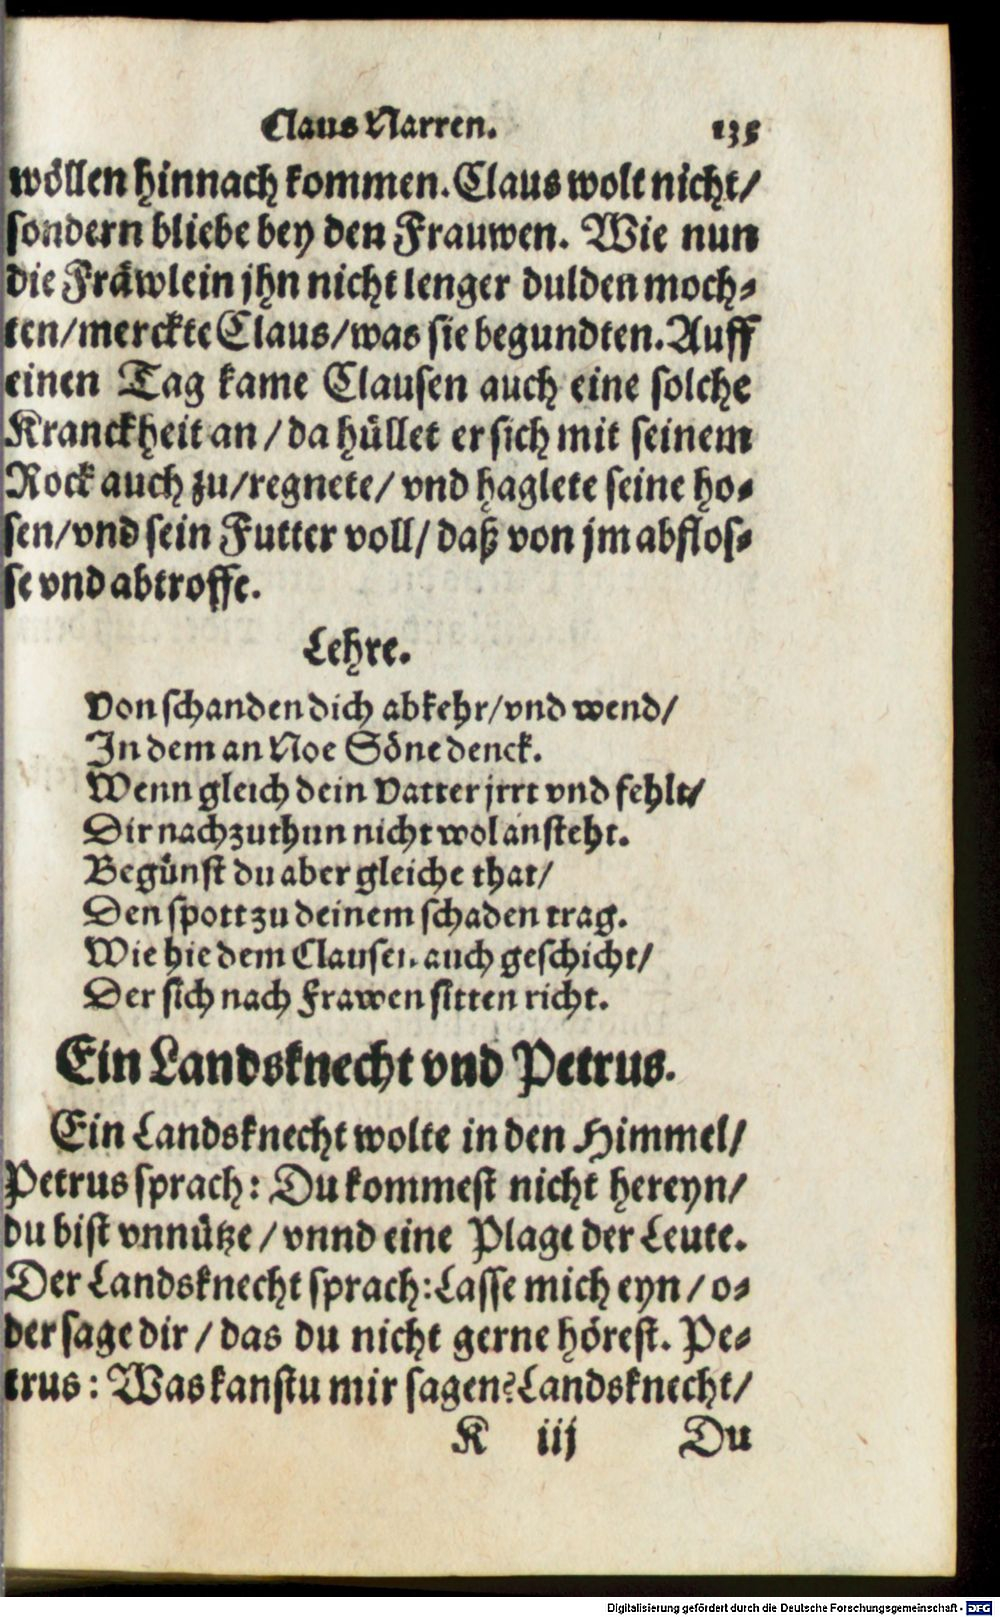 Claus Narren. 135
wöllen hinnach kommen. Claus wolt nicht/
sondern bliebe bey den Frauwen. Wie nun
die Fräwlein jhn nicht lenger dulden moch-
ten/merckte Claus/was sie begundten. Auff
einen Tag kame Clausen auch eine solche
Kranckheit an/da hüllet er sich mit seinem
Rock auch zu/regnete/vnd haglete seine ho-
sen/vnd sein Futter voll/daß von jm abflos-
se vnd abtroffe.
Lehre.
Von schanden dich abkehr/vnd wend/
In dem an Noe Söne denck.
Wenn gleich dein Vatter jrrt vnd fehlt/
Dir nachzuthun nicht wol ansteht.
Begünst du aber gleiche that/
Den spott zu deinem schaden trag.
Wie hie dem Clausen auch geschicht/
Der sich nach Frawen sitten richt.
Ein Landsknecht vnd Petrus.
Ein Landsknecht wolte in den Himmel/
Petrus sprach: Du kommest nicht hereyn/
du bist vnnütze/vnnd eine Plage der Leute.
Der Landsknecht sprach: Lasse mich eyn/o-
der sage dir/das du nicht gerne hörest. Pe-
trus: Was kanstu mir sagen? Landsknecht/
K iij Du
Digitalisierung gefördert durch die Deutsche Forschungsgemeinschaft - DFG